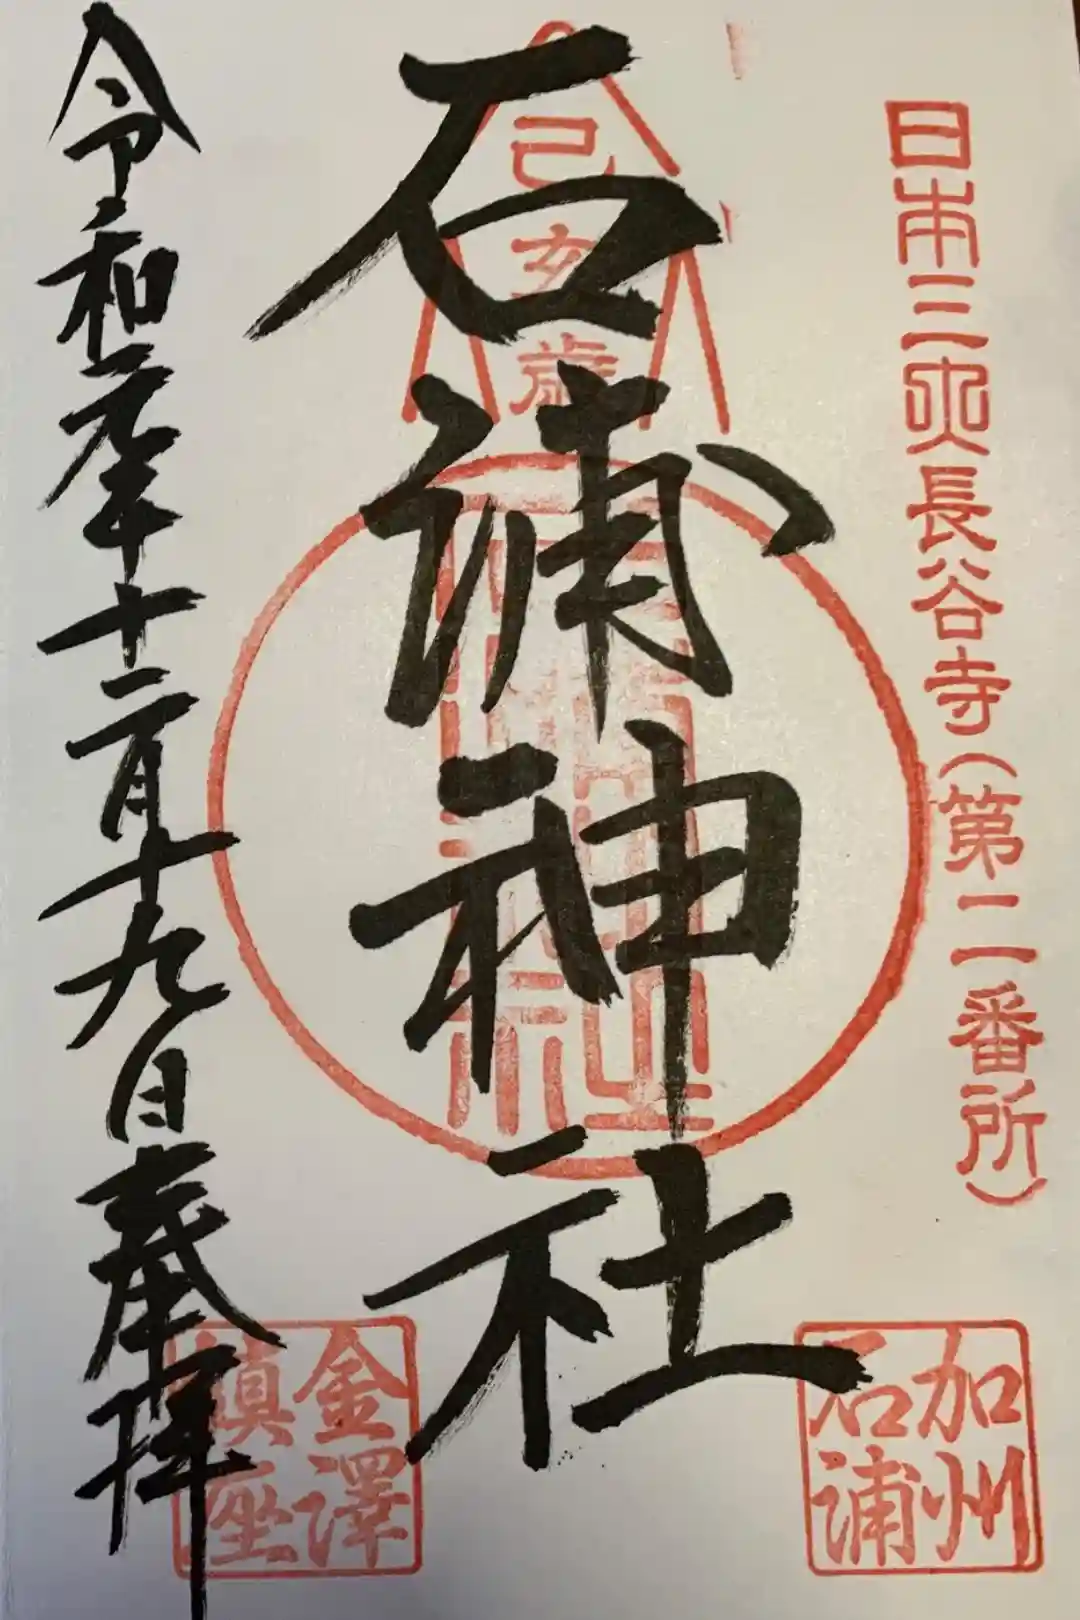 日本三央長谷寺(第二番所)
加州
石浦
己亥歳
石浦神社
令和元年十二月十九日奉拝
金澤
鎮座